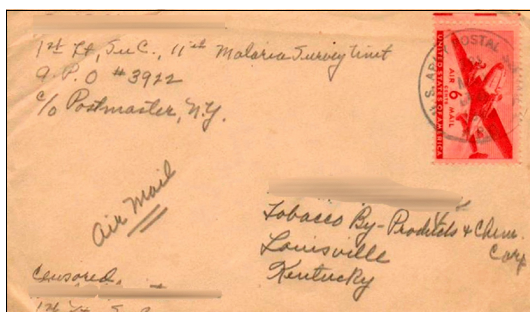 1st Lt, Sn C., 11th Malaria Survey Unit
A.P.O #3922
c/o Postmaster, N.Y.
U.S. ARMY POSTAL
UNITED STATES OF AMERICA
AIR 6 CENTS MAIL
Air Mail
Tobacco By-Products & Chem.
Corp
Louisville
Kentucky
Censored.
1st Lt. S